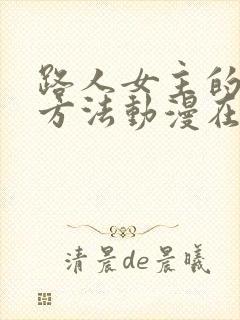 路人女主的
方法動漫在
清晨de晨曦